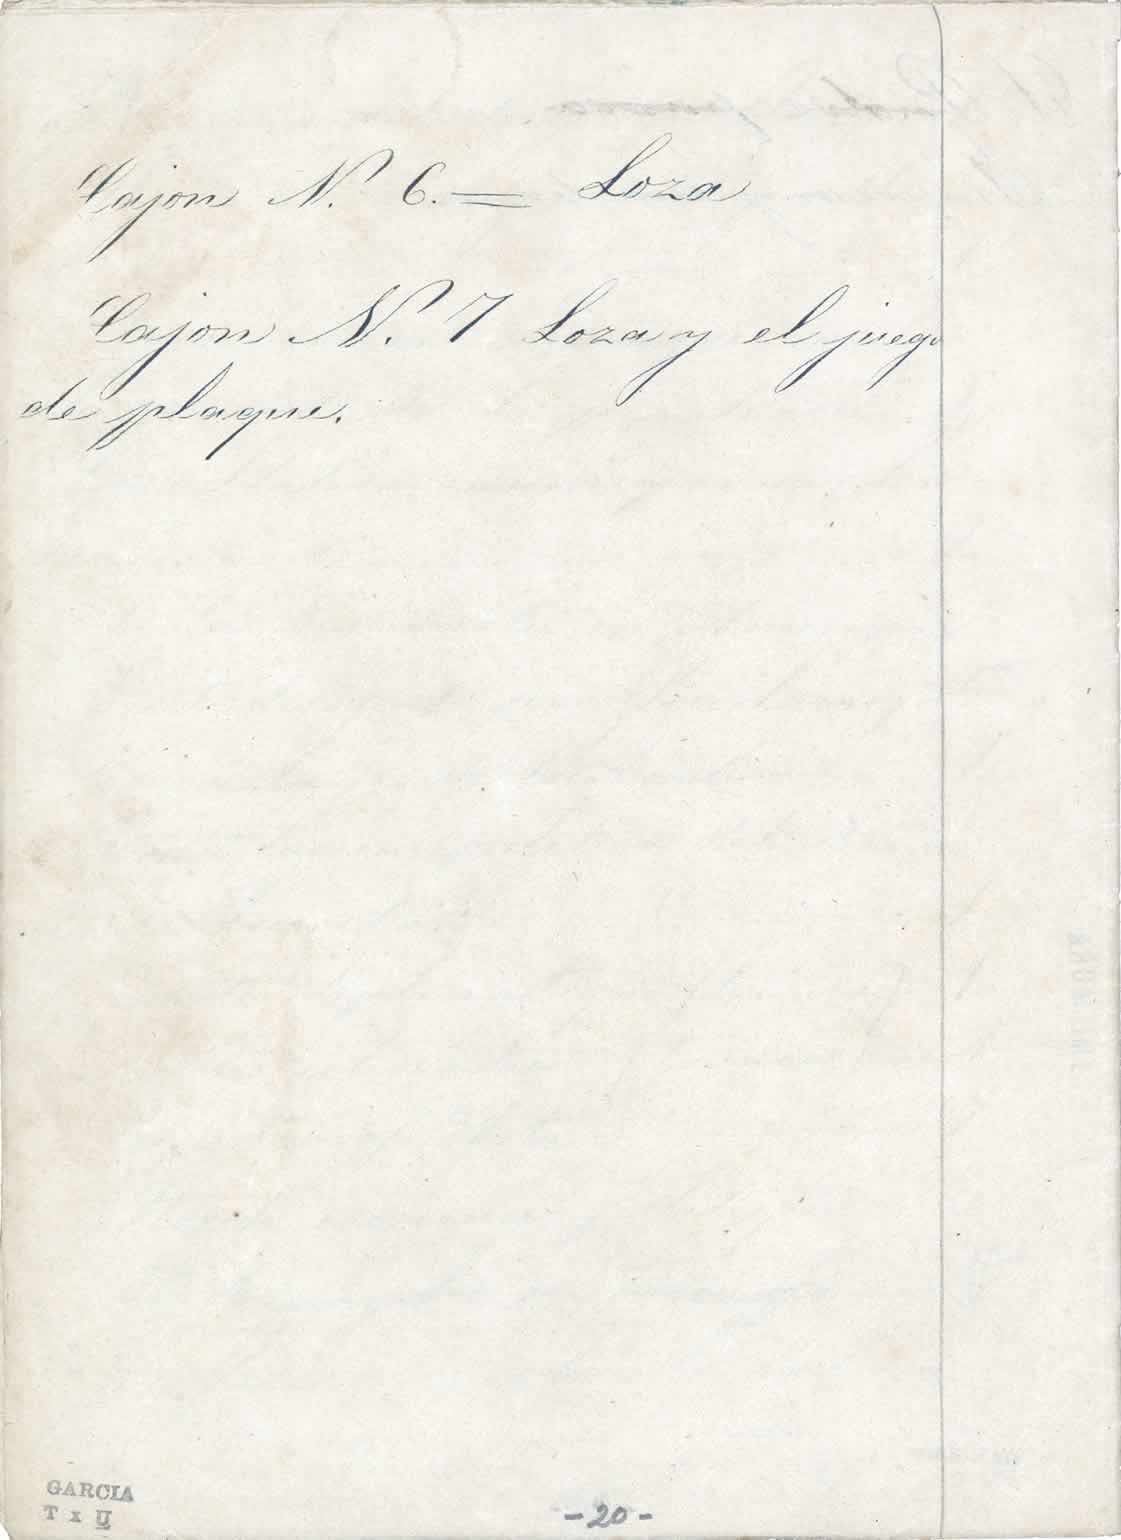 Cajon N. 6. = Loza
Cajon N. 7 Loza y el juego
de plaque.
GARCIA
T x II
-20-